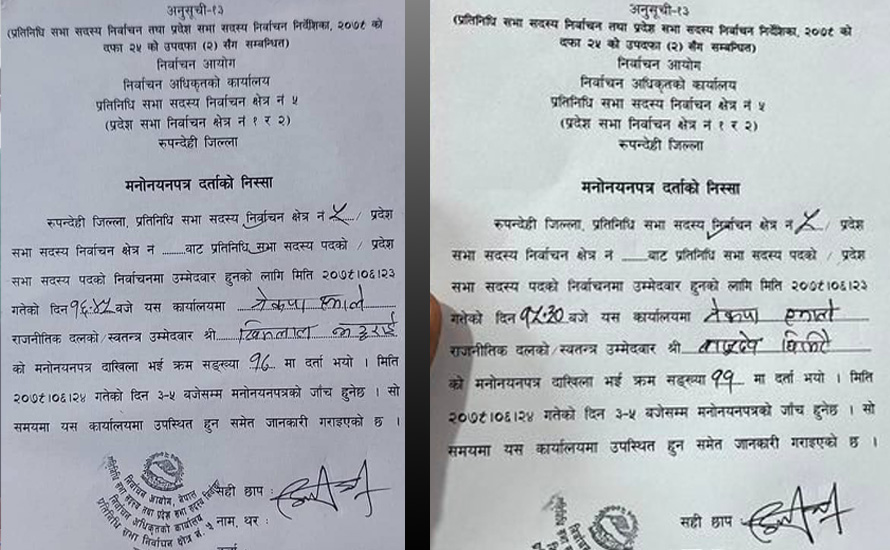 अनुसूची-१३
(प्रतिनिधि सभा सदस्य निर्वाचन तथा प्रदेश सभा सदस्य निर्वाचन निर्देशिका, २०७९ को
दफा २५ को उपदफा (२) सँग सम्बन्धित)
निर्वाचन आयोग
निर्वाचन अधिकृतको कार्यालय
प्रतिनिधि सभा सदस्य निर्वाचन क्षेत्र नं ५
(प्रदेश सभा निर्वाचन क्षेत्र नं १ र २)
रुपन्देही जिल्ला
मनोनयनपत्र दर्ताको निस्सा
रुपन्देही जिल्ला, प्रतिनिधि सभा सदस्य निर्वाचन क्षेत्र नं ५ / प्रदेश
सभा सदस्य निर्वाचन क्षेत्र नं ........बाट प्रतिनिधि सभा सदस्य पदको / प्रदेश
सभा सदस्य पदको निर्वाचनमा उम्मेदवार हुनको लागि मिति २०७९।०६।२३
गतेको दिन १६:४५ बजे यस कार्यालयमा नेकपा एमाले
राजनीतिक दलको/स्वतन्त्र उम्मेदवार श्री
को मनोनयनपत्र दाखिला भई क्रम सङ्ख्या १६ मा दर्ता भयो । मिति
२०७९।०६।२४ गतेको दिन ३-५ बजेसम्म मनोनयनपत्रको जाँच हुनेछ । सो
समयमा यस कार्यालयमा उपस्थित हुन समेत जानकारी गराइएको छ ।
सही छाप :
नाम, थर :
निर्वाचन आयोग, नेपाल
प्रतिनिधि सभा सदस्य तथा प्रदेश सभा सदस्य निर्वाचन
निर्वाचन अधिकृतको कार्यालय
प्रतिनिधि सभा निर्वाचन क्षेत्र नं. ५
अनुसूची-१३
(प्रतिनिधि सभा सदस्य निर्वाचन तथा प्रदेश सभा सदस्य निर्वाचन निर्देशिका, २०७९ को
दफा २५ को उपदफा (२) सँग सम्बन्धित)
निर्वाचन आयोग
निर्वाचन अधिकृतको कार्यालय
प्रतिनिधि सभा सदस्य निर्वाचन क्षेत्र नं ५
(प्रदेश सभा निर्वाचन क्षेत्र नं १ र २)
रुपन्देही जिल्ला
मनोनयनपत्र दर्ताको निस्सा
रुपन्देही जिल्ला, प्रतिनिधि सभा सदस्य निर्वाचन क्षेत्र नं ५ / प्रदेश
सभा सदस्य निर्वाचन क्षेत्र नं ......बाट प्रतिनिधि सभा सदस्य पदको / प्रदेश
सभा सदस्य पदको निर्वाचनमा उम्मेदवार हुनको लागि मिति २०७९।०६।२३
गतेको दिन १५:२० बजे यस कार्यालयमा नेकपा एमाले
राजनीतिक दलको/स्वतन्त्र उम्मेदवार श्री वासुदेव घिमिरे
को मनोनयनपत्र दाखिला भई क्रम सङ्ख्या ११ मा दर्ता भयो । मिति
२०७९।०६।२४ गतेको दिन ३-५ बजेसम्म मनोनयनपत्रको जाँच हुनेछ । सो
समयमा यस कार्यालयमा उपस्थित हुन समेत जानकारी गराइएको छ ।
सही छाप :